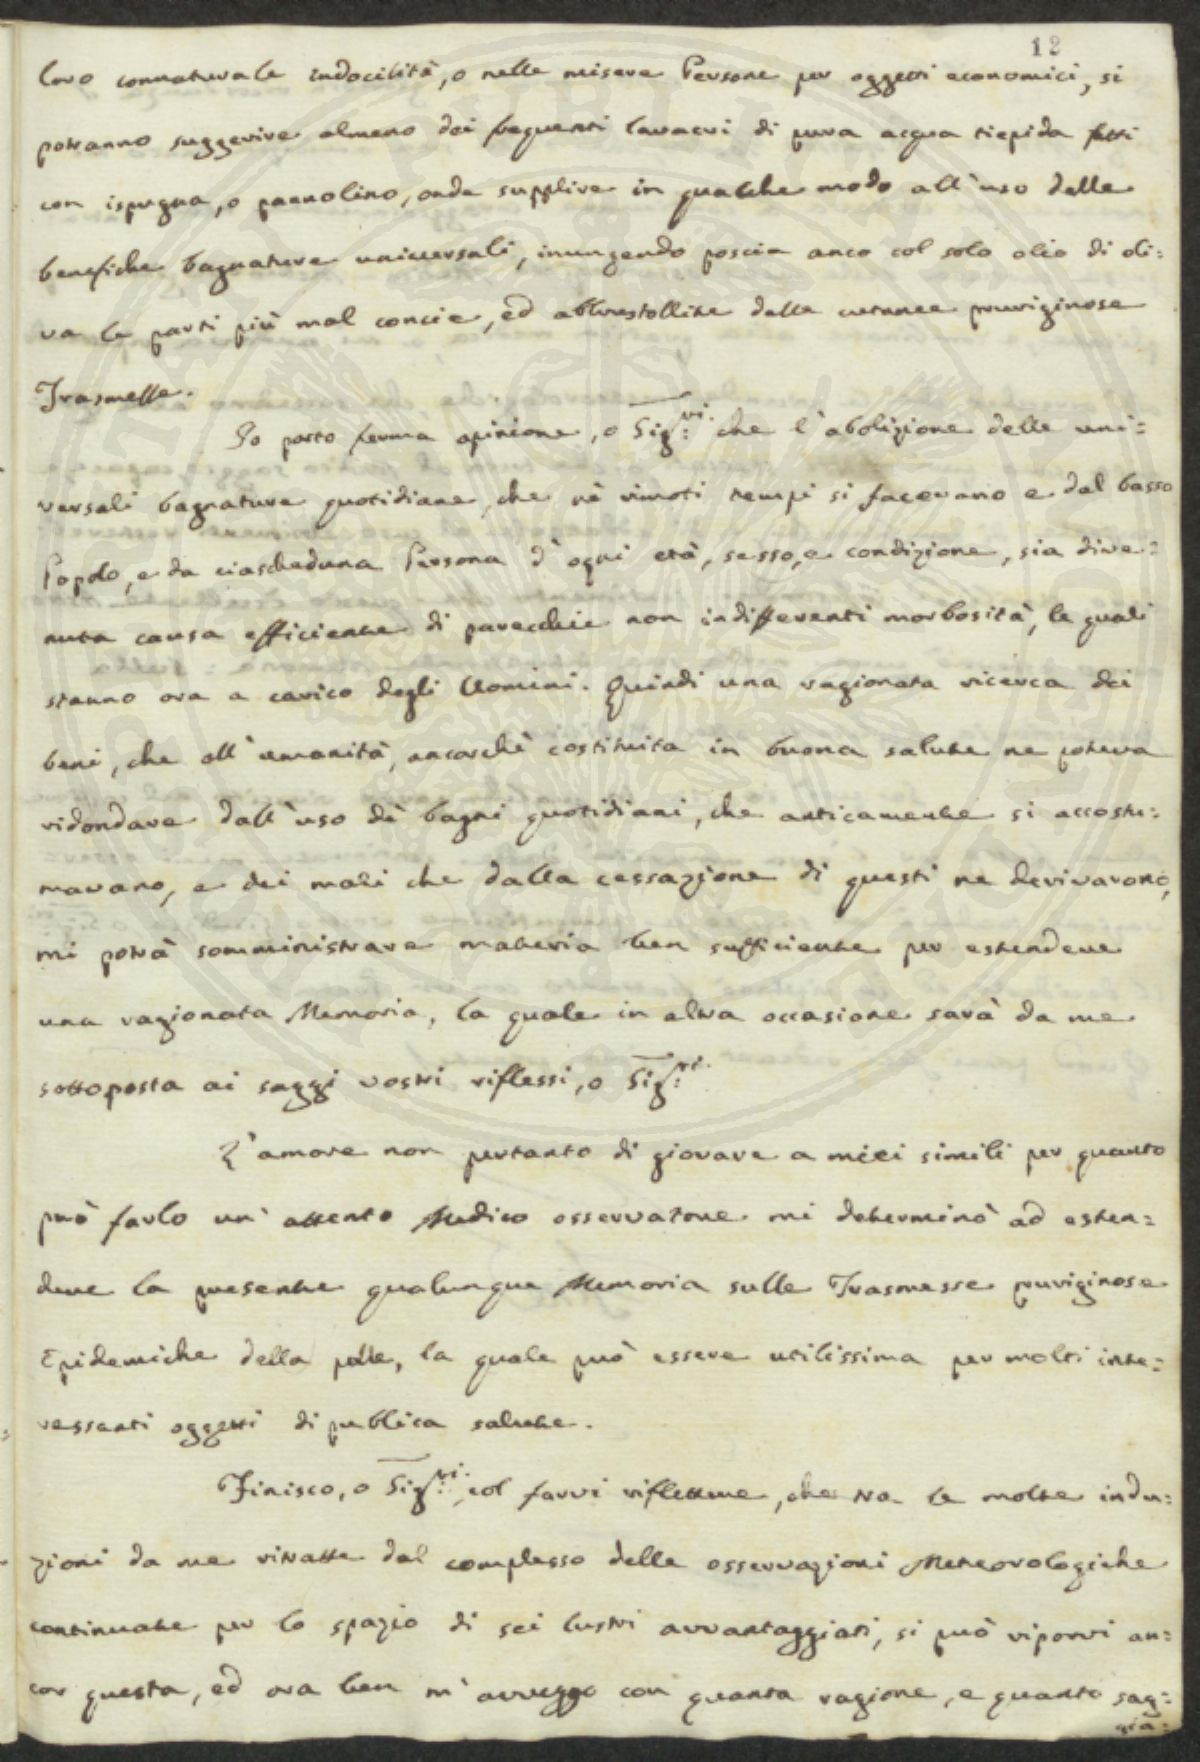 12
loro connaturale indocilità, o nelle misere Persone per oggetti economici, si
potranno suggerire almeno dei frequenti lavacri di pura acqua tiepida fatti
con ispugna, o pannolino, onde supplire in qualche modo all'uso delle
benefiche bagnature universali, inungendo poscia anco col solo olio di oli=
va le parti più mal concie, ed abbrustollite dalle cutanee pruriginose
Trasmesse.
Io porto ferma opinione, o Sig:ri che l'abolizione delle uni=
versali bagnature quotidiane, che nè rimoti tempi si facevano e dal basso
Popolo, e da ciascheduna Persona d'ogni età, sesso, e condizione, sia dive=
nuta causa efficiente di parecchie non indifferenti morbosità, le quali
stanno ora a carico degli Uomini. Quindi una ragionata ricerca dei
beni, che all'umanità, ancorchè costituita in buona salute ne poteva
ridondare dall'uso dè bagni quotidiani, che anticamente si accostu=
mavano, e dei mali che dalla cessazione di questi ne derivarono,
mi potrà somministrare materia ben sufficiente per estendere
una ragionata Memoria, la quale in altra occasione sarà da me
sottoposta ai saggi vostri riflessi, o Sig:ri
L'amore non pertanto di giovare a miei simili per quanto
può farlo un' attento Medico osservatore mi determinò ad esten=
dere la presente qualunque Memoria sulle Trasmesse pruriginose
Epidemiche della pelle, la quale può essere utilissima per molti inte=
ressanti oggetti di publica salute.
Finisco, o Sig:ri, col farvi riflettere, che tra le molte indu=
zioni da me ritratte dal complesso delle osservazioni Meteorologiche
continuate per lo spazio di sei lustri avvantaggiati, si può riporvi an=
cor questa, ed ora ben m'avveggo con quanta ragione, e quanto sag=
gia=